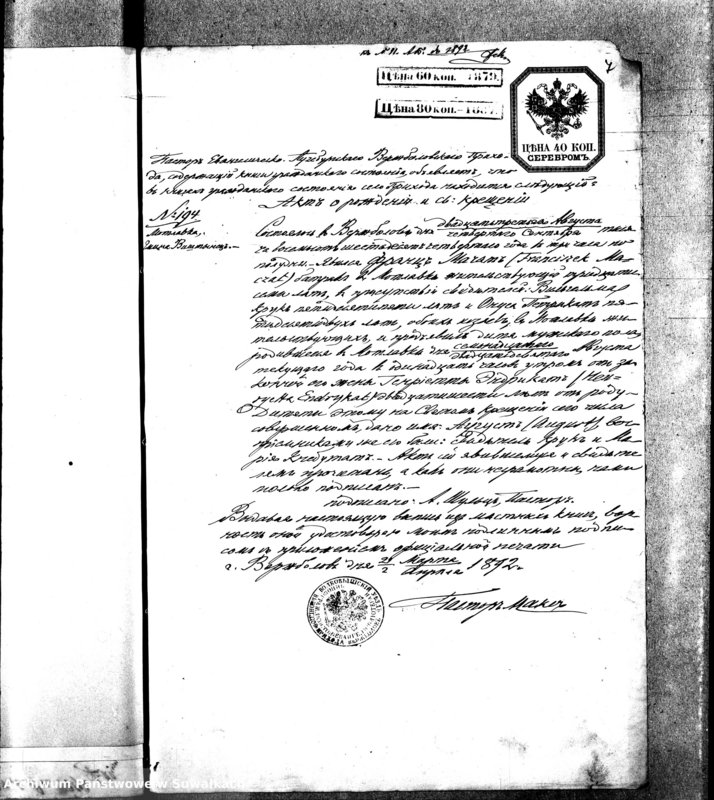 къ № 11. Ак. д. 1892.
Цѣна 60 коп. 1879.
Цѣна 80 коп. — 1887.
ЦѢНА 40 КОП.
СЕРЕБРОМЪ.
7
Пасторъ Евангелическо-Аугсбургскаго Вержболовскаго Прихо-
да, содержащій книги гражданскаго состоянія, объявляетъ, что
въ книгахъ гражданскаго состоянія сего Прихода находится слѣдующій:
Актъ о рожденіи и св: крещеніи
№ 194
Мотлавка,
Гмина Виштынецъ.
Состоялся въ Вержболовѣ дня двадцать третьяго Августа
четвертаго Сентября тыся-
ча восемьсотъ шестьдесятъ четвертаго года въ три часа по
полудни. Явился Францъ Мачатъ (Franciszek Ma-
czat) батракъ въ Мотлавкѣ жительствующій тридцати
лѣтъ, въ присутствіи свидѣтелей: Вильгельма
Ярукъ пятидесяти пяти лѣтъ и Енса пя-
тидесяти двухъ лѣтъ, обоихъ въ Мотлавкѣ жи-
тельствующихъ, и предъявилъ дитя мужскаго пола
родившееся въ Мотлавкѣ дня семнадцатаго
двадцать девятаго Августа
текущаго года въ одинадцать часовъ утромъ отъ за-
конной его жены Генріетты Эндрикатъ (Hen-
ryetta Endrykat) двадцати шести лѣтъ отъ роду.
Дитяти этому на Святомъ крещеніи сего числа
совершенномъ, дано имя: Августъ (August) вос-
пріемниками же его были: Ярукъ и Ма-
рія Актъ сей явившемуся и свидѣте-
лямъ прочитанъ, а какъ они неграмотны, нами
только подписанъ.
подписано: А. Шульцъ, Пасторъ.
Выдавая настоящую выпись изъ мѣстныхъ книгъ, вѣр-
ность оной удостовѣряю моимъ подлиннымъ подпи-
сомъ съ приложеніемъ офиціальной печати
г. Вержболовъ дня Марта
Апрѣля 1892 г.
Пасторъ
Archiwum Państwowe w Suwałkach